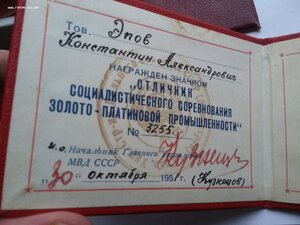 Тов. Эпов
Константин Александрович
НАГРАЖДЕН ЗНАЧКОМ
„ОТЛИЧНИК
СОЦИАЛИСТИЧЕСКОГО СОРЕВНОВАНИЯ
ЗОЛОТО-ПЛАТИНОВОЙ ПРОМЫШЛЕННОСТИ"
№ 3255
и.о. Начальник Главного
МВД СССР
(Кузнецов)
"30" октября 1951 г.